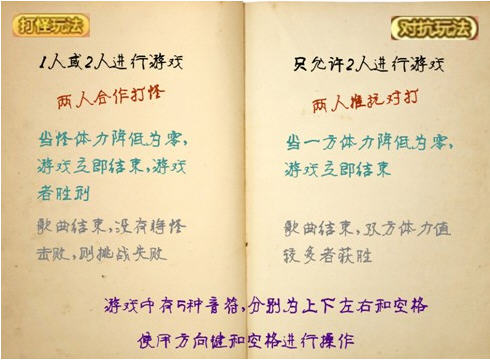 打怪玩法
1人或2人进行游戏
两人合作打怪
当怪体力降低为零,
游戏立即结束,游戏
者胜利
歌曲结束,没有将怪
击败,则挑战失败
对抗玩法
只允许2人进行游戏
两人对打
当一方体力降低为零,
游戏立即结束
歌曲结束,双方体力值
较多者获胜
游戏中有5种音符,分别为上下左右和空格
使用方向键和空格进行操作